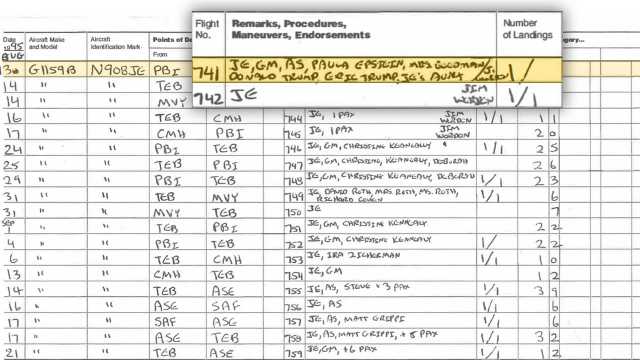 Flight No. Remarks, Procedures, Maneuvers, Endorsements Number of Landings
741 JE, GM, AS, PAULA EPSTEIN, MRS GOODMAN
DONALD TRUMP, ERIC TRUMP, JE's AUNT 1/
742 JE JIM WORDEN 1/1
Date 1995 Aircraft Make and Model Aircraft Identification Mark Points of De
From
AUG
13 G1159B N908JE PBI
14 " " TEB
14 " " MVY
16 " " TEB CMH 744 JE, 1 PAX JIM WORDON 1/1 1 1
17 " " CMH PBI 745 JE, 1 PAX JIM WORDON 2 0
24 " " PBI TEB 746 JE, GM, CHRISTINE 1/1 2 5
25 " " TEB PBI 747 JE, GM, CHRISTINE , DEBORAH 2 6
29 " " PBI TEB 748 JE, GM, CHRISTINE , DEBORAH 1/1 2 3
31 " " TEB MVY 749 JE, DAVID ROTH, MRS ROTH, MS. ROTH, RICHARD COHEN 1/1 6
31 " " MVY TEB 750 JE 7
SEP
1 " " TEB PBI 751 JE, GM, CHRISTINE 2 2
4 " " PBI TEB 752 JE, GM, CHRISTINE 1/1 2 2
6 " " TEB CMH 753 JE, IRA ZICHERMAN 1/1 1 0
13 " " CMH TEB 754 JE, GM 1 2
14 " " TEB ASE 755 JE, AS, STEVE + 3 PAX 1/1 3 9
16 " " ASE SAF 756 JE, AS 1/1 6
17 " " SAF ASE 757 JE, AS, MATT GRIPPI 1/1 6
17 " " ASE TEB 758 JE, AS, MATT GRIPPI, + 8 PAX 1/1 3 2
21 " " TEB ASE 759 JE, GM, +6 PAX 1/1